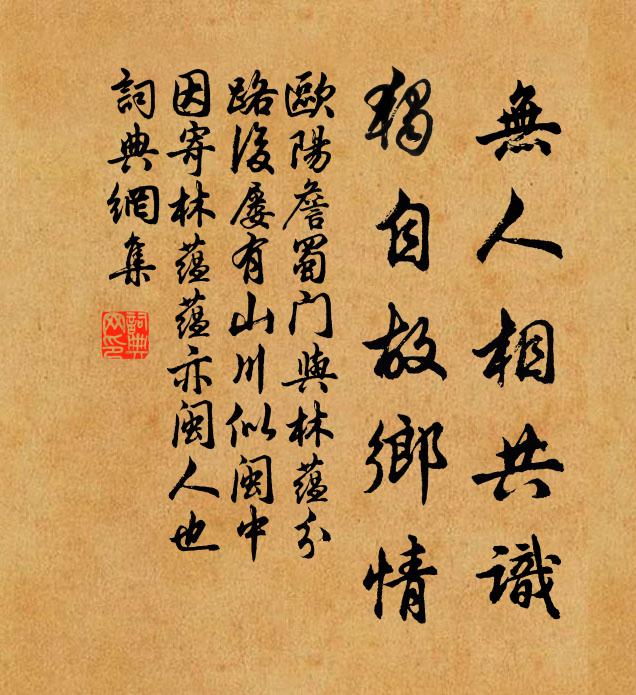 無人相共識
獨自故鄉情
歐陽詹蜀门與林蘊分
路後屢有山川似閩中
因寄林蘊蘊亦閩人也
詞典網集
詞典網印